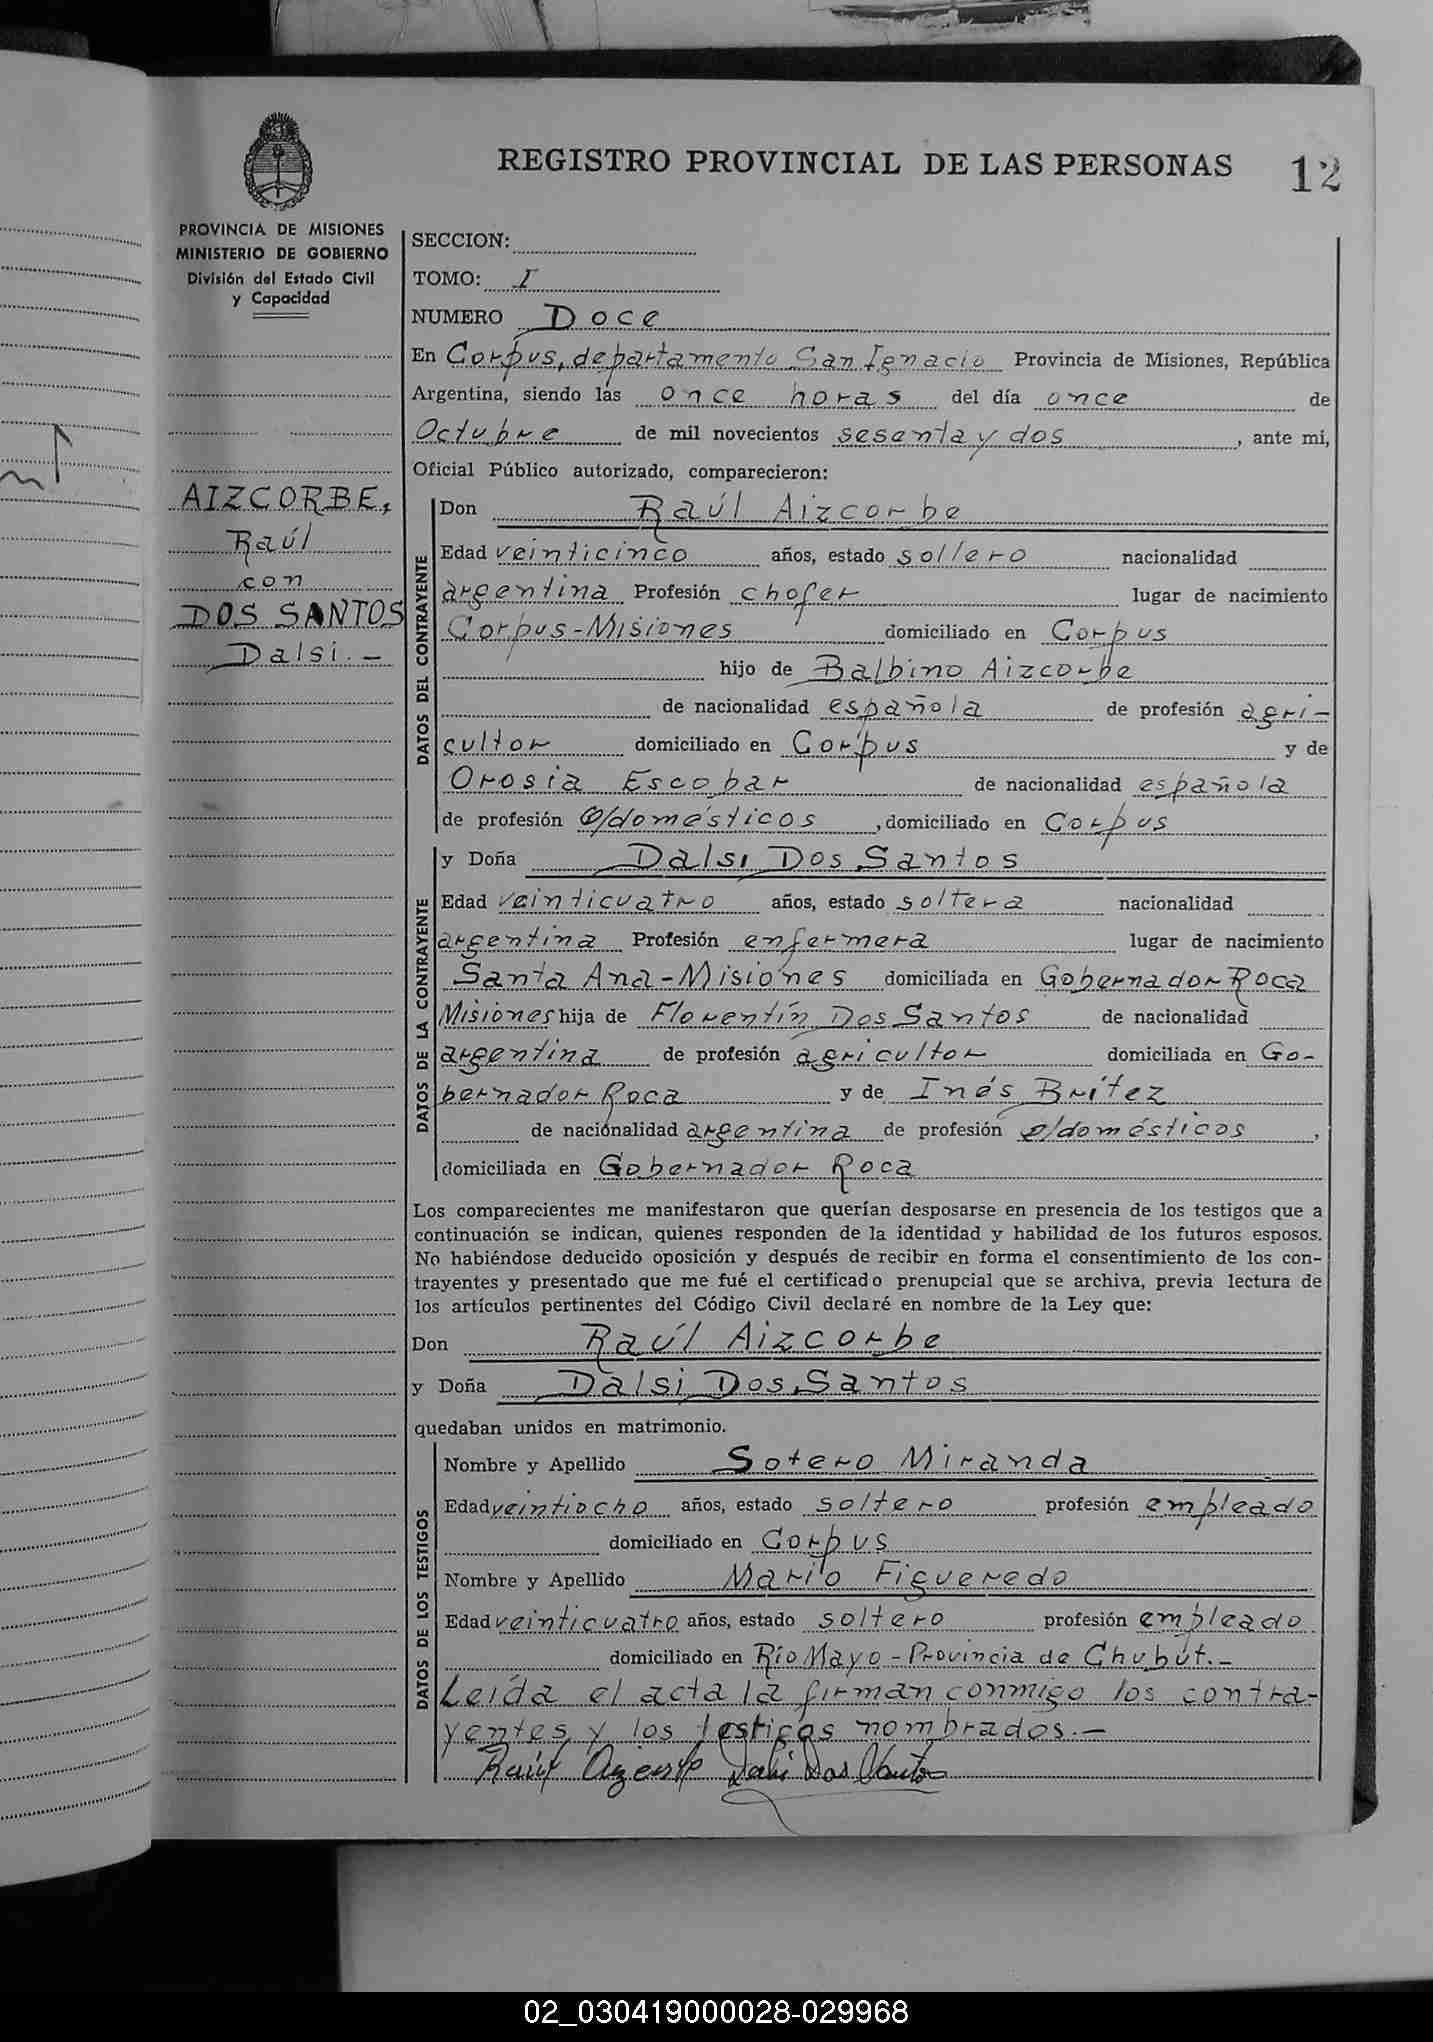 REGISTRO PROVINCIAL DE LAS PERSONAS
12
PROVINCIA DE MISIONES
MINISTERIO DE GOBIERNO
División del Estado Civil
y Capacidad
AIZCORBE,
Raúl
con
DOS SANTOS
Dalsi.-
SECCION:
TOMO: I
NUMERO Doce
En Corpus, departamento San Ignacio Provincia de Misiones, República
Argentina, siendo las once horas del día once de
Octubre de mil novecientos sesenta y dos, ante mi,
Oficial Público autorizado, comparecieron:
DATOS DEL CONTRAYENTE
Don Raúl Aizcorbe
Edad veinticinco años, estado soltero nacionalidad
argentina Profesión chofer lugar de nacimiento
Corpus-Misiones domiciliado en Corpus
hijo de Balbino Aizcorbe
de nacionalidad española de profesión agri-
cultor domiciliado en Corpus y de
Orosia Escobar de nacionalidad española
de profesión q/domésticos, domiciliado en Corpus
DATOS DE LA CONTRAYENTE
y Doña Dalsi Dos Santos
Edad veinticuatro años, estado soltera nacionalidad
argentina Profesión enfermera lugar de nacimiento
Santa Ana-Misiones domiciliada en Gobernador Roca
Misiones hija de Florentín Dos Santos de nacionalidad
argentina de profesión agricultor domiciliada en Go-
bernador Roca y de Inés Brítez
de nacionalidad argentina de profesión q/domésticos,
domiciliada en Gobernador Roca
Los comparecientes me manifestaron que querían desposarse en presencia de los testigos que a
continuación se indican, quienes responden de la identidad y habilidad de los futuros esposos.
No habiéndose deducido oposición y después de recibir en forma el consentimiento de los con-
trayentes y presentado que me fué el certificado prenupcial que se archiva, previa lectura de
los artículos pertinentes del Código Civil declaré en nombre de la Ley que:
Don Raúl Aizcorbe
y Doña Dalsi Dos Santos
quedaban unidos en matrimonio.
DATOS DE LOS TESTIGOS
Nombre y Apellido Sotero Miranda
Edad veintiocho años, estado soltero profesión empleado
domiciliado en Corpus
Nombre y Apellido Mario Figueredo
Edad veinticuatro años, estado soltero profesión empleado
domiciliado en Río Mayo-Provincia de Chubút.-
Leída el acta la firman conmigo los contra-
yentes y los testigos nombrados.-
Raúl Aizcorbe Dalsi Dos Santos
02_030419000028-029968